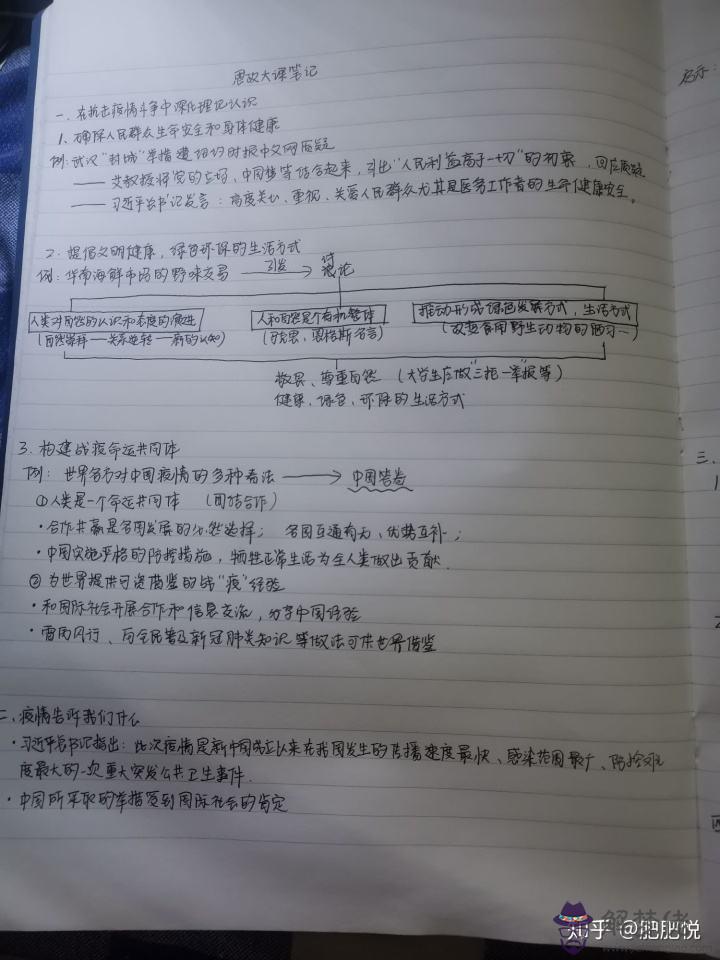 思政大课笔记
一、在抗击疫情斗争中深化理论认识
1、确保人民群众生命安全和身体健康
例:武汉"封城"举措遭纽约时报中文网质疑
—— 艾教授将它的立场、中国梦等结合起来,引出"人民利益高于一切"的初衷,回应质疑
—— 习近平总书记发言:高度关心、重视、关爱人民群众尤其是医务工作者的生命健康安全。
2、提倡文明健康,绿色环保的生活方式
例:华南海鲜市场的野味交易 引发 → 讨论
人类对自然的认识和态度的演进 人和自然是个有机整体 推动形成绿色发展方式,生活方式
(自然崇拜——关系逆转——新的认知) (马克思、恩格斯名言) (改变食用野生动物的陋习…)
敬畏、尊重自然 (大学生应做"三拒一举报"等)
健康、绿色、环保的生活方式
3、构建战疫命运共同体
例:世界各方对中国疫情的多种看法 → 中国答卷
①人类是一个命运共同体 (团结合作)
·合作共赢是各国发展的必然选择; 各国互通有无、优势互补;
·中国实施严格的防控措施,牺牲正常生活为全人类做出贡献.
②为世界提供可资借鉴的战"疫"经验
·和国际社会开展合作和信息交流,分享中国经验
·雷厉风行、向全民普及新冠肺炎知识等做法可供世界借鉴
二、疫情告诉我们什么
·习近平总书记指出:此次疫情是新中国成立以来在我国发生的传播速度最快、感染范围最广、防控难
度最大的一次重大突发公共卫生事件.
·中国所采取的举措受到国际社会的肯定
启示:
三、
1
2
四
解梦佬
知乎 @肥肥悦